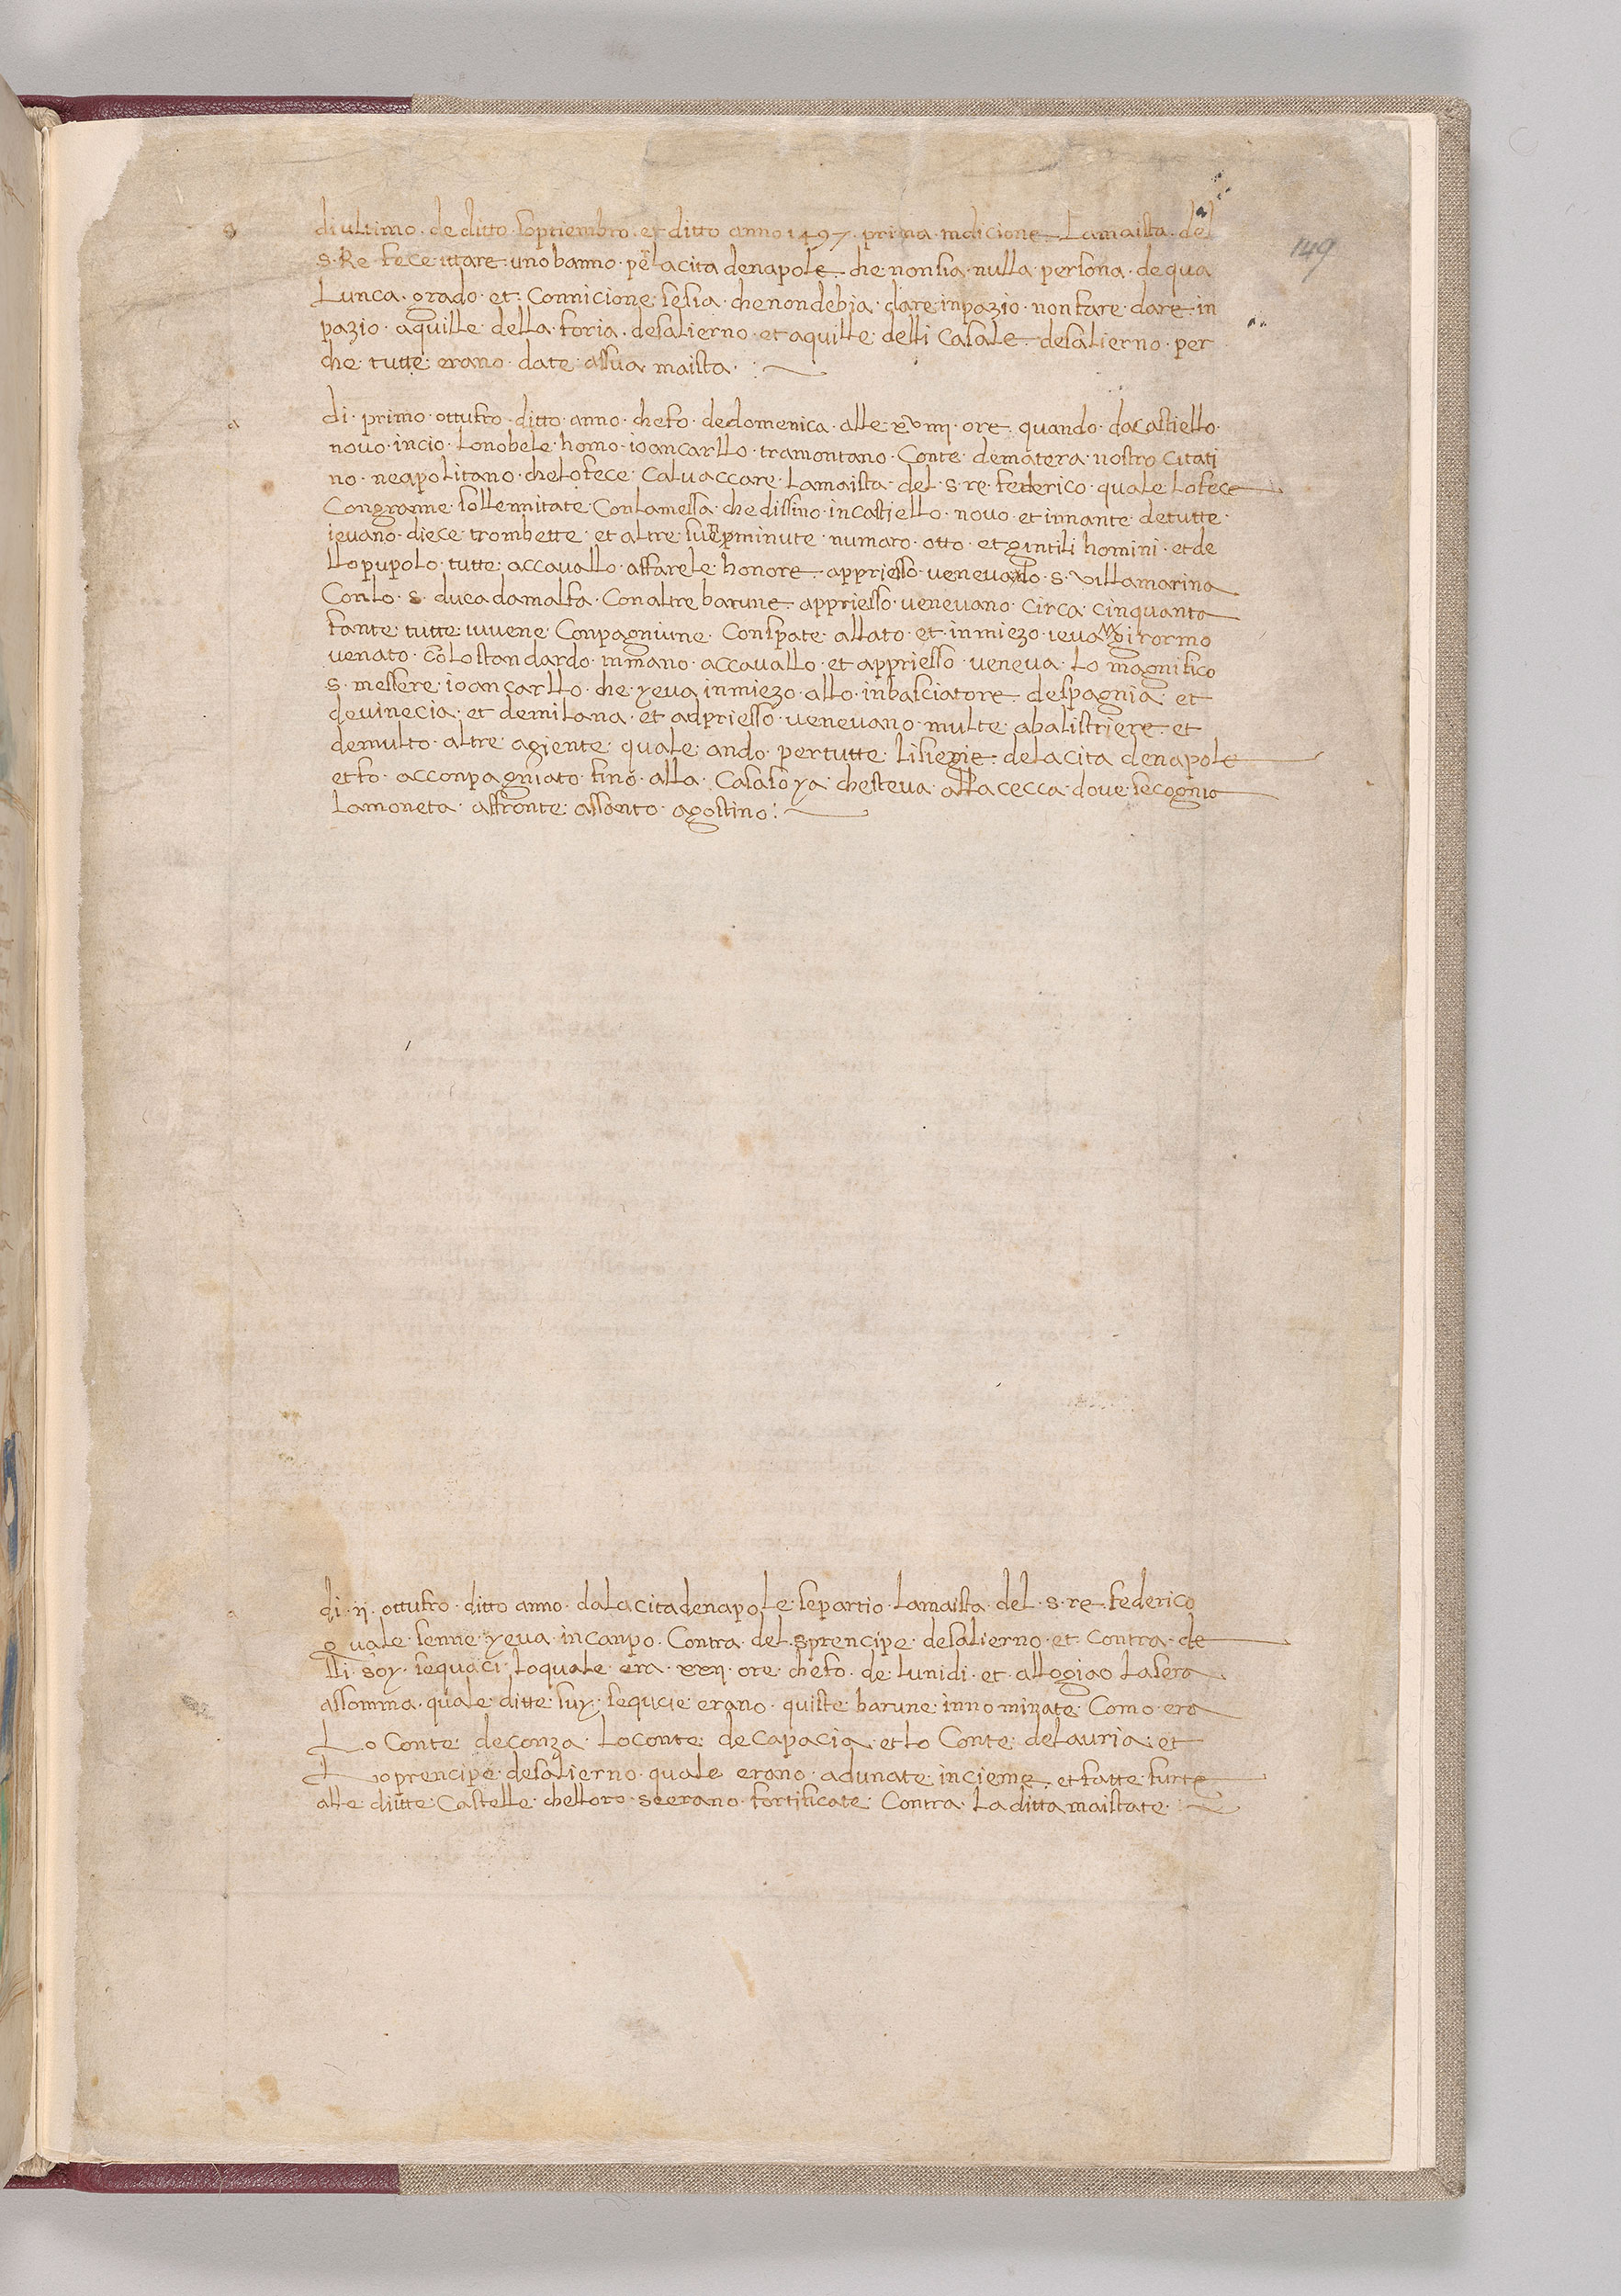 149
a di ultimo · de ditto · soptiembro · et ditto anno 1497 · prima · indicione · Lamaista · del
s · Re fece ittare · uno banno · per la cita denapole · che nonsia · nulla · persona · de qua
Lunca · grado · et · Connicione · sesia · chenondebia · dare inpazio · non fare · dare · in
pazio · aquille · della · foria · desalierno · et aquille · delli Casale · desalierno · per
che · tutte · erano · date · assua · maista ·
a di · primo · ottufro · ditto · anno · chefo · dedomenica · alle · ore · quando · dacastiello ·
novo · incio · Lonobele · homo · ioancarllo · tramontano · Conte · dematera · nostro citati
no · neapolitano · chelofece · Calvaccare · Lamaista · del · s · re · federico · quale Lofece
Congranne · sollennitate · Conlamessa · che dissino · incastiello · novo · et innante · detutte ·
ievano · diece · trombette · et altre · minute · numaro · otto · et gintili homini · et de
llo pupolo · tutte · accavallo · affarele · honore · appriesso · venevano · s · villamarina
Conlo · s · duca damalfa · Conaltre barune · appriesso · venevano · circa · cinquanta
fante · tutte · iuvene · Conpagniune · Conspate · allato · et · inmiezo · ieva girormo
venato · colo standardo · inmano · accavallo · et appriesso · veneva · Lo magnifico
s · messere · ioancarllo · che · yeva inmiezo · allo · inbasciatore · despagnia · et
devinecia · et demilana · et adpriesso · venevano · multe · abalistriere · et
demulto · altre · agiente · quale · ando · pertutte · lisiegie · delacita denapole
et fo · acconpagniato · fino · alla · Casasoya · chesteva · allacecca · dove · secognia
Lamoneta · affronte · assanto · agostino :
a di · ii · ottufro · ditto anno · dalacitadenapole · separtio · Lamaista · del · s · re · federico
quale · senne · yeva · incanpo · Contra · del · sprencipe · desalierno · et · contra · de
lli · soy · sequaci · loquale · era · xxii · ore · chefo · de · lunidi · et · allogiao Lasera
assomma · quale · ditte · suy · sequcie · erano · quiste · barune · innominate · Como · era
Lo Conte · deconza · Loconte · decapacia · et lo Conte · delauria · et
Lo prencipe · desalierno · quale · erano · adunate · incieme · et fatte · furte
alle · ditte · Castelle · chelloro · seerano · fortificate · Contra · La ditta maistate ·